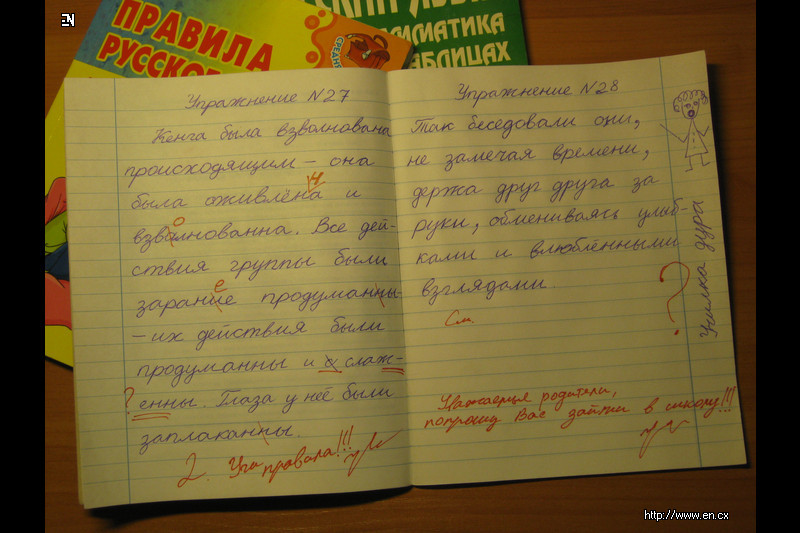 EN
ПРАВИЛА
РУССКО
АММАТИКА
АБЛИЦАХ
Упражнение N27
Кенга была взволнована
происходящим – она
была оживлёна и
н
взвалнованна. Все дей-
о
ствия группы были
зарание продуманны-
е
– их действия были
продуманны и а слаж-
енны. Глаза у неё были
?
заплаканны.
2. Учи правила!!!
Упражнение N28
Так беседовали они,
не замечая времени,
держа друг друга за
руки, обмениваясь улыб-
ками и влюблёнными
взглядами.
См.
?
Училка дура
Уважаемые родители,
попрошу Вас зайти в школу!!!
http://www.en.cx